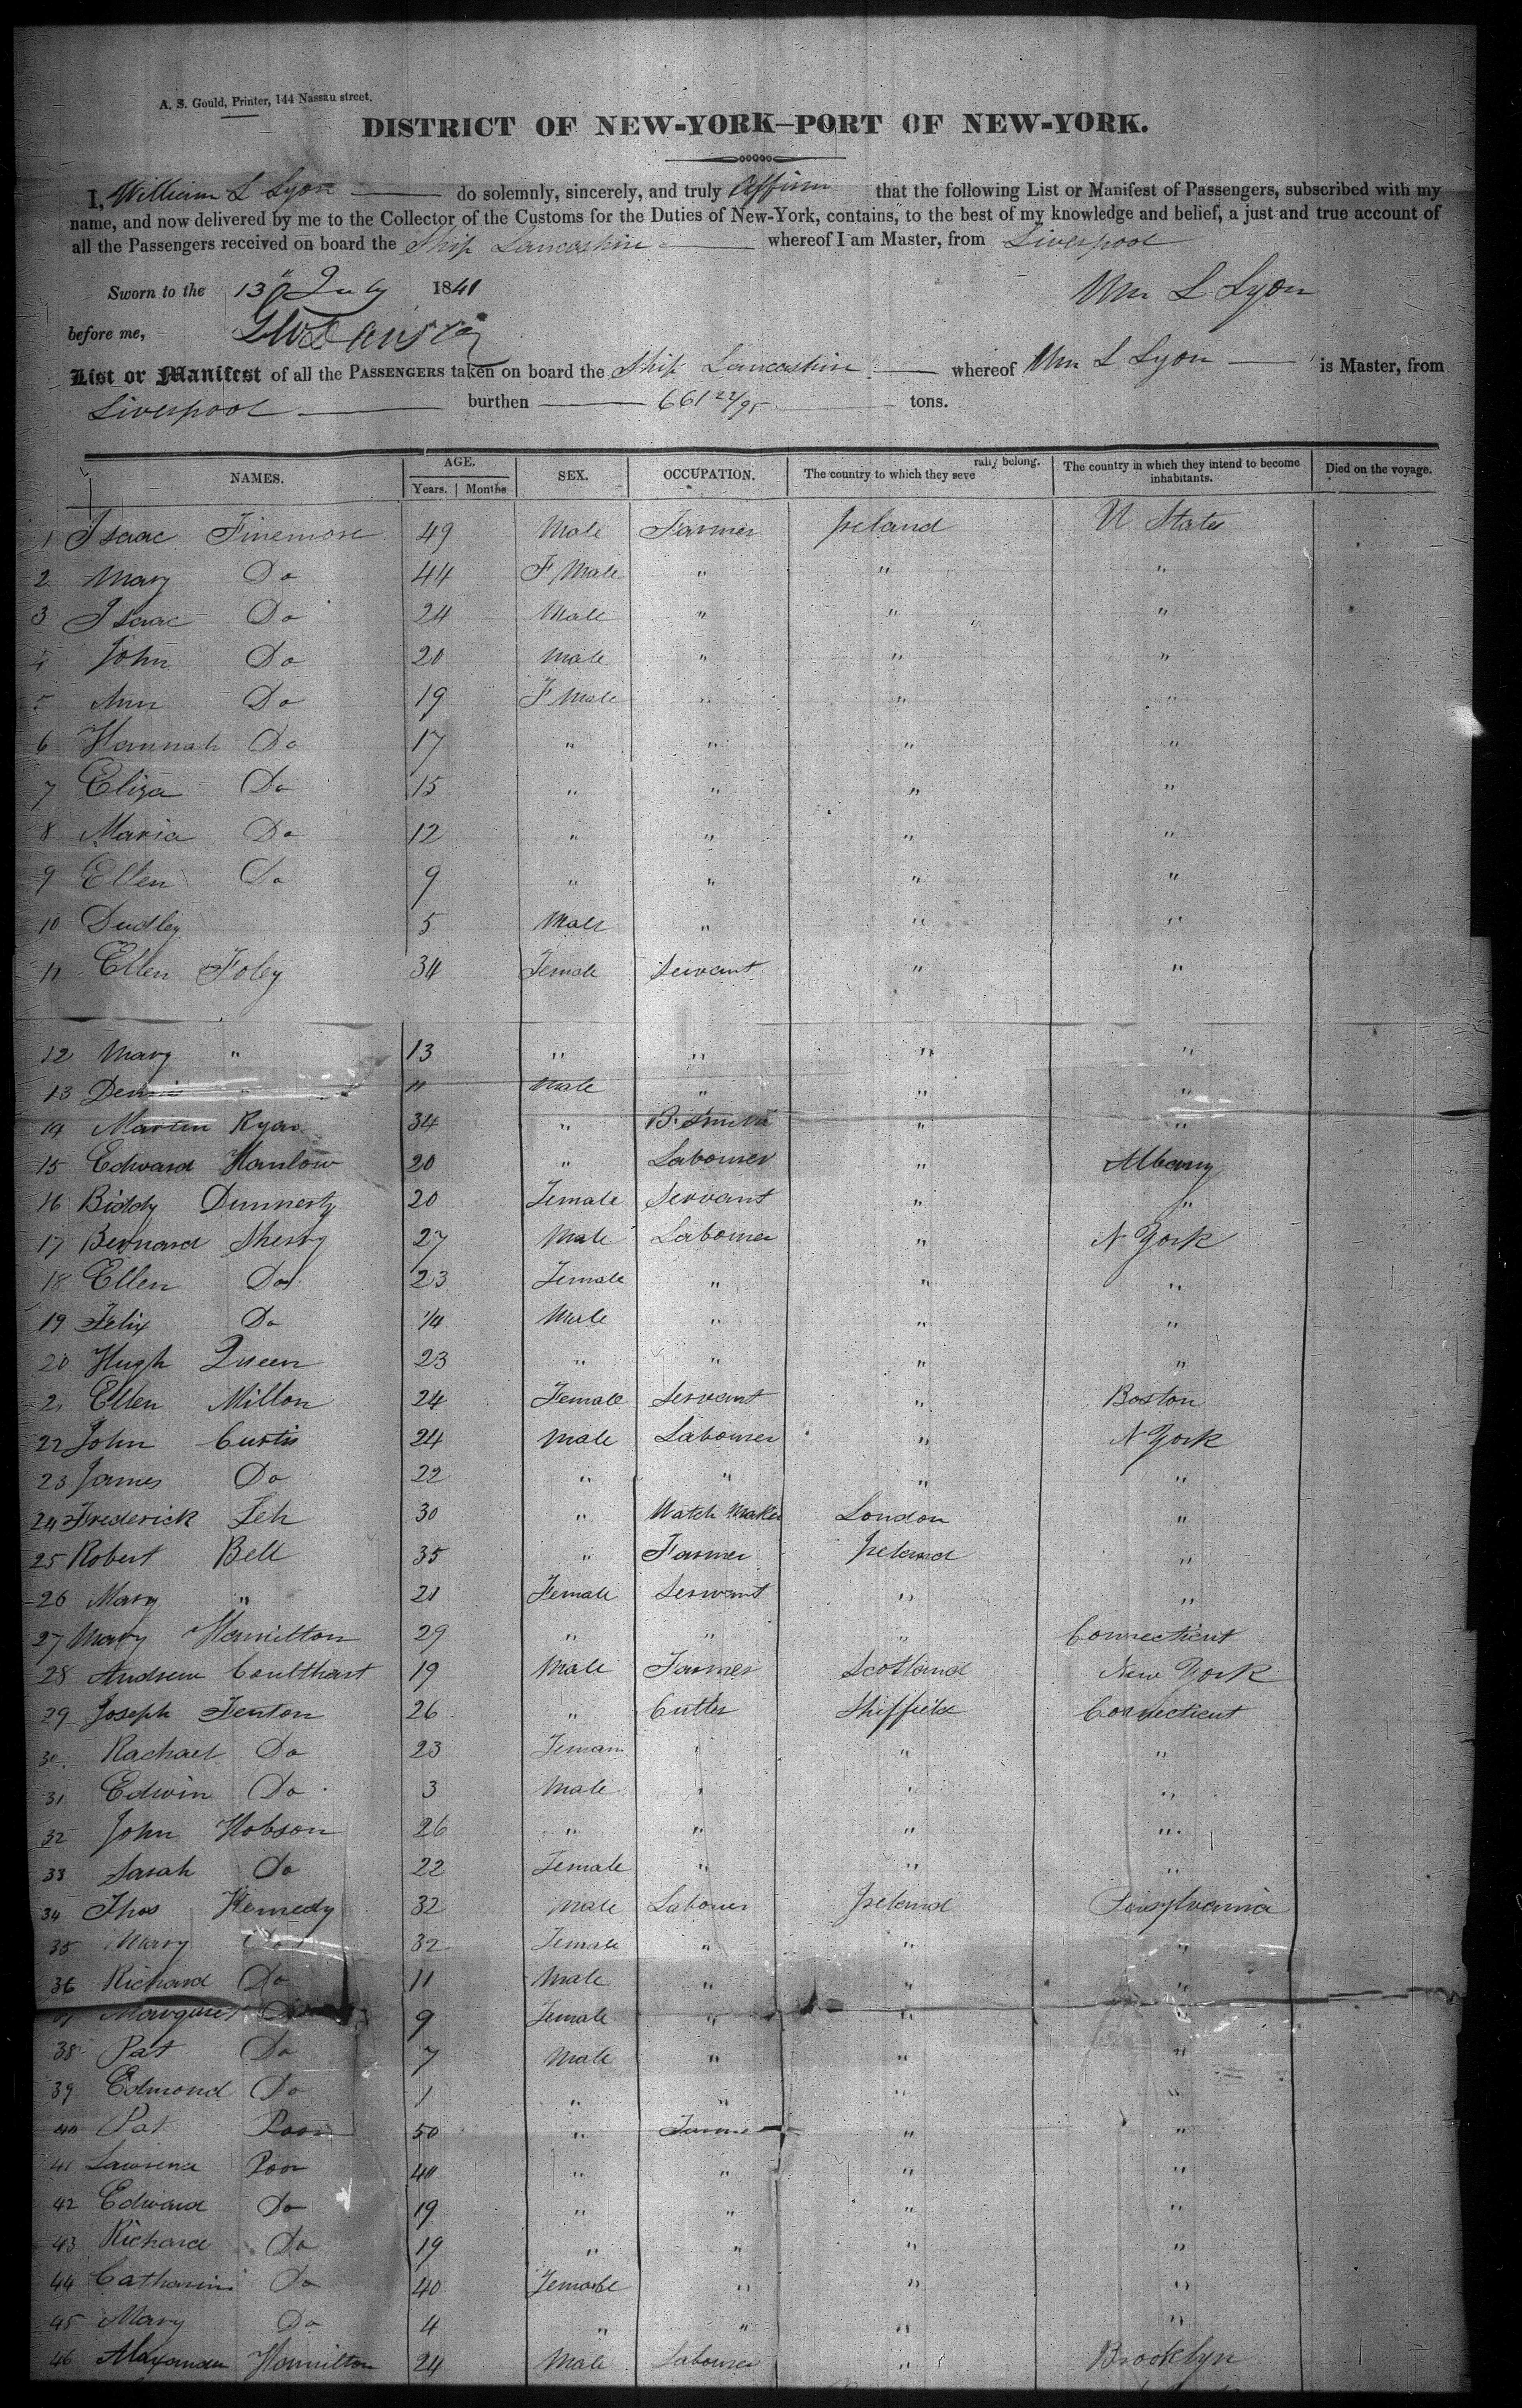 A. S. Gould, Printer, 144 Nassau street.
DISTRICT OF NEW-YORK—PORT OF NEW-YORK.
I, William L Lyon do solemnly, sincerely, and truly Affirm that the following List or Manifest of Passengers, subscribed with my
name, and now delivered by me to the Collector of the Customs for the Duties of New-York, contains, to the best of my knowledge and belief, a just and true account of
all the Passengers received on board the Ship Lancashire whereof I am Master, from Liverpool
Sworn to the 13 July 1841 Wm L Lyon
before me,
List or Manifest of all the PASSENGERS taken on board the Ship Lancashire whereof Wm L Lyon is Master, from
Liverpool burthen 661 22/95 tons.
NAMES. AGE. Years. Months SEX. OCCUPATION. The country to which they seve rally belong. The country in which they intend to become inhabitants. Died on the voyage.
1 Isaac Finemore 49 Male Farmer Ireland U States
2 Mary Do 44 F Male " " "
3 Isaac Do 24 Male " " "
4 John Do 20 Male " " "
5 Ann Do 19 F Male " " "
6 Hannah Do 17 " " " "
7 Eliza Do 15 " " " "
8 Maria Do 12 " " " "
9 Ellen Do 9 " " " "
10 Dudley 5 Male " " "
11 Ellen Foley 34 Female Servant " "
12 Mary " 13 " " " "
13 Dennis " 11 Male " " "
14 Martin Ryan 34 " B. Smith " "
15 Edward Hanlow 20 " Labourer " Albany
16 Biddy Dunnerty 20 Female Servant " "
17 Bernard Sherry 27 Male Labourer " N York
18 Ellen Do 23 Female " " "
19 Felix Do 1/4 Male " " "
20 Hugh Queen 23 " " " "
21 Ellen Milton 24 Female Servant " Boston
22 John Curtis 24 Male Labourer " N York
23 James Do 22 " " " "
24 Frederick Leh 30 " Watch Maker London "
25 Robert Bell 35 " Farmer Ireland "
26 Mary " 21 Female Servant " "
27 Mary Hamilton 29 " " " Connecticut
28 Andrew Coulthart 19 Male Farmer Scotland New York
29 Joseph Fenton 26 " Cutler Shiffield Connecticut
30 Rachael Do 23 " " "
31 Edwin Do 3 Male " " "
32 John Hobson 26 " " " "
33 Sarah Do 22 Female " " "
34 Thos Kennedy 32 Male Labourer Ireland Pensylvania
35 Mary Do 32 Female " " "
36 Richard Do 11 Male " " "
37 Margaret Do 9 Female " " "
38 Pat Do 7 Male " " "
39 Edmond Do 1 " " " "
40 Pat Poor 50 " Farmer " "
41 Lawrence Poor 40 " " " "
42 Edward Do 19 " " " "
43 Richard Do 19 " " " "
44 Catharine Do 40 Female " " "
45 Mary Do 4 " " " "
46 Alexander Hamilton 24 Male Labourer " Brooklyn